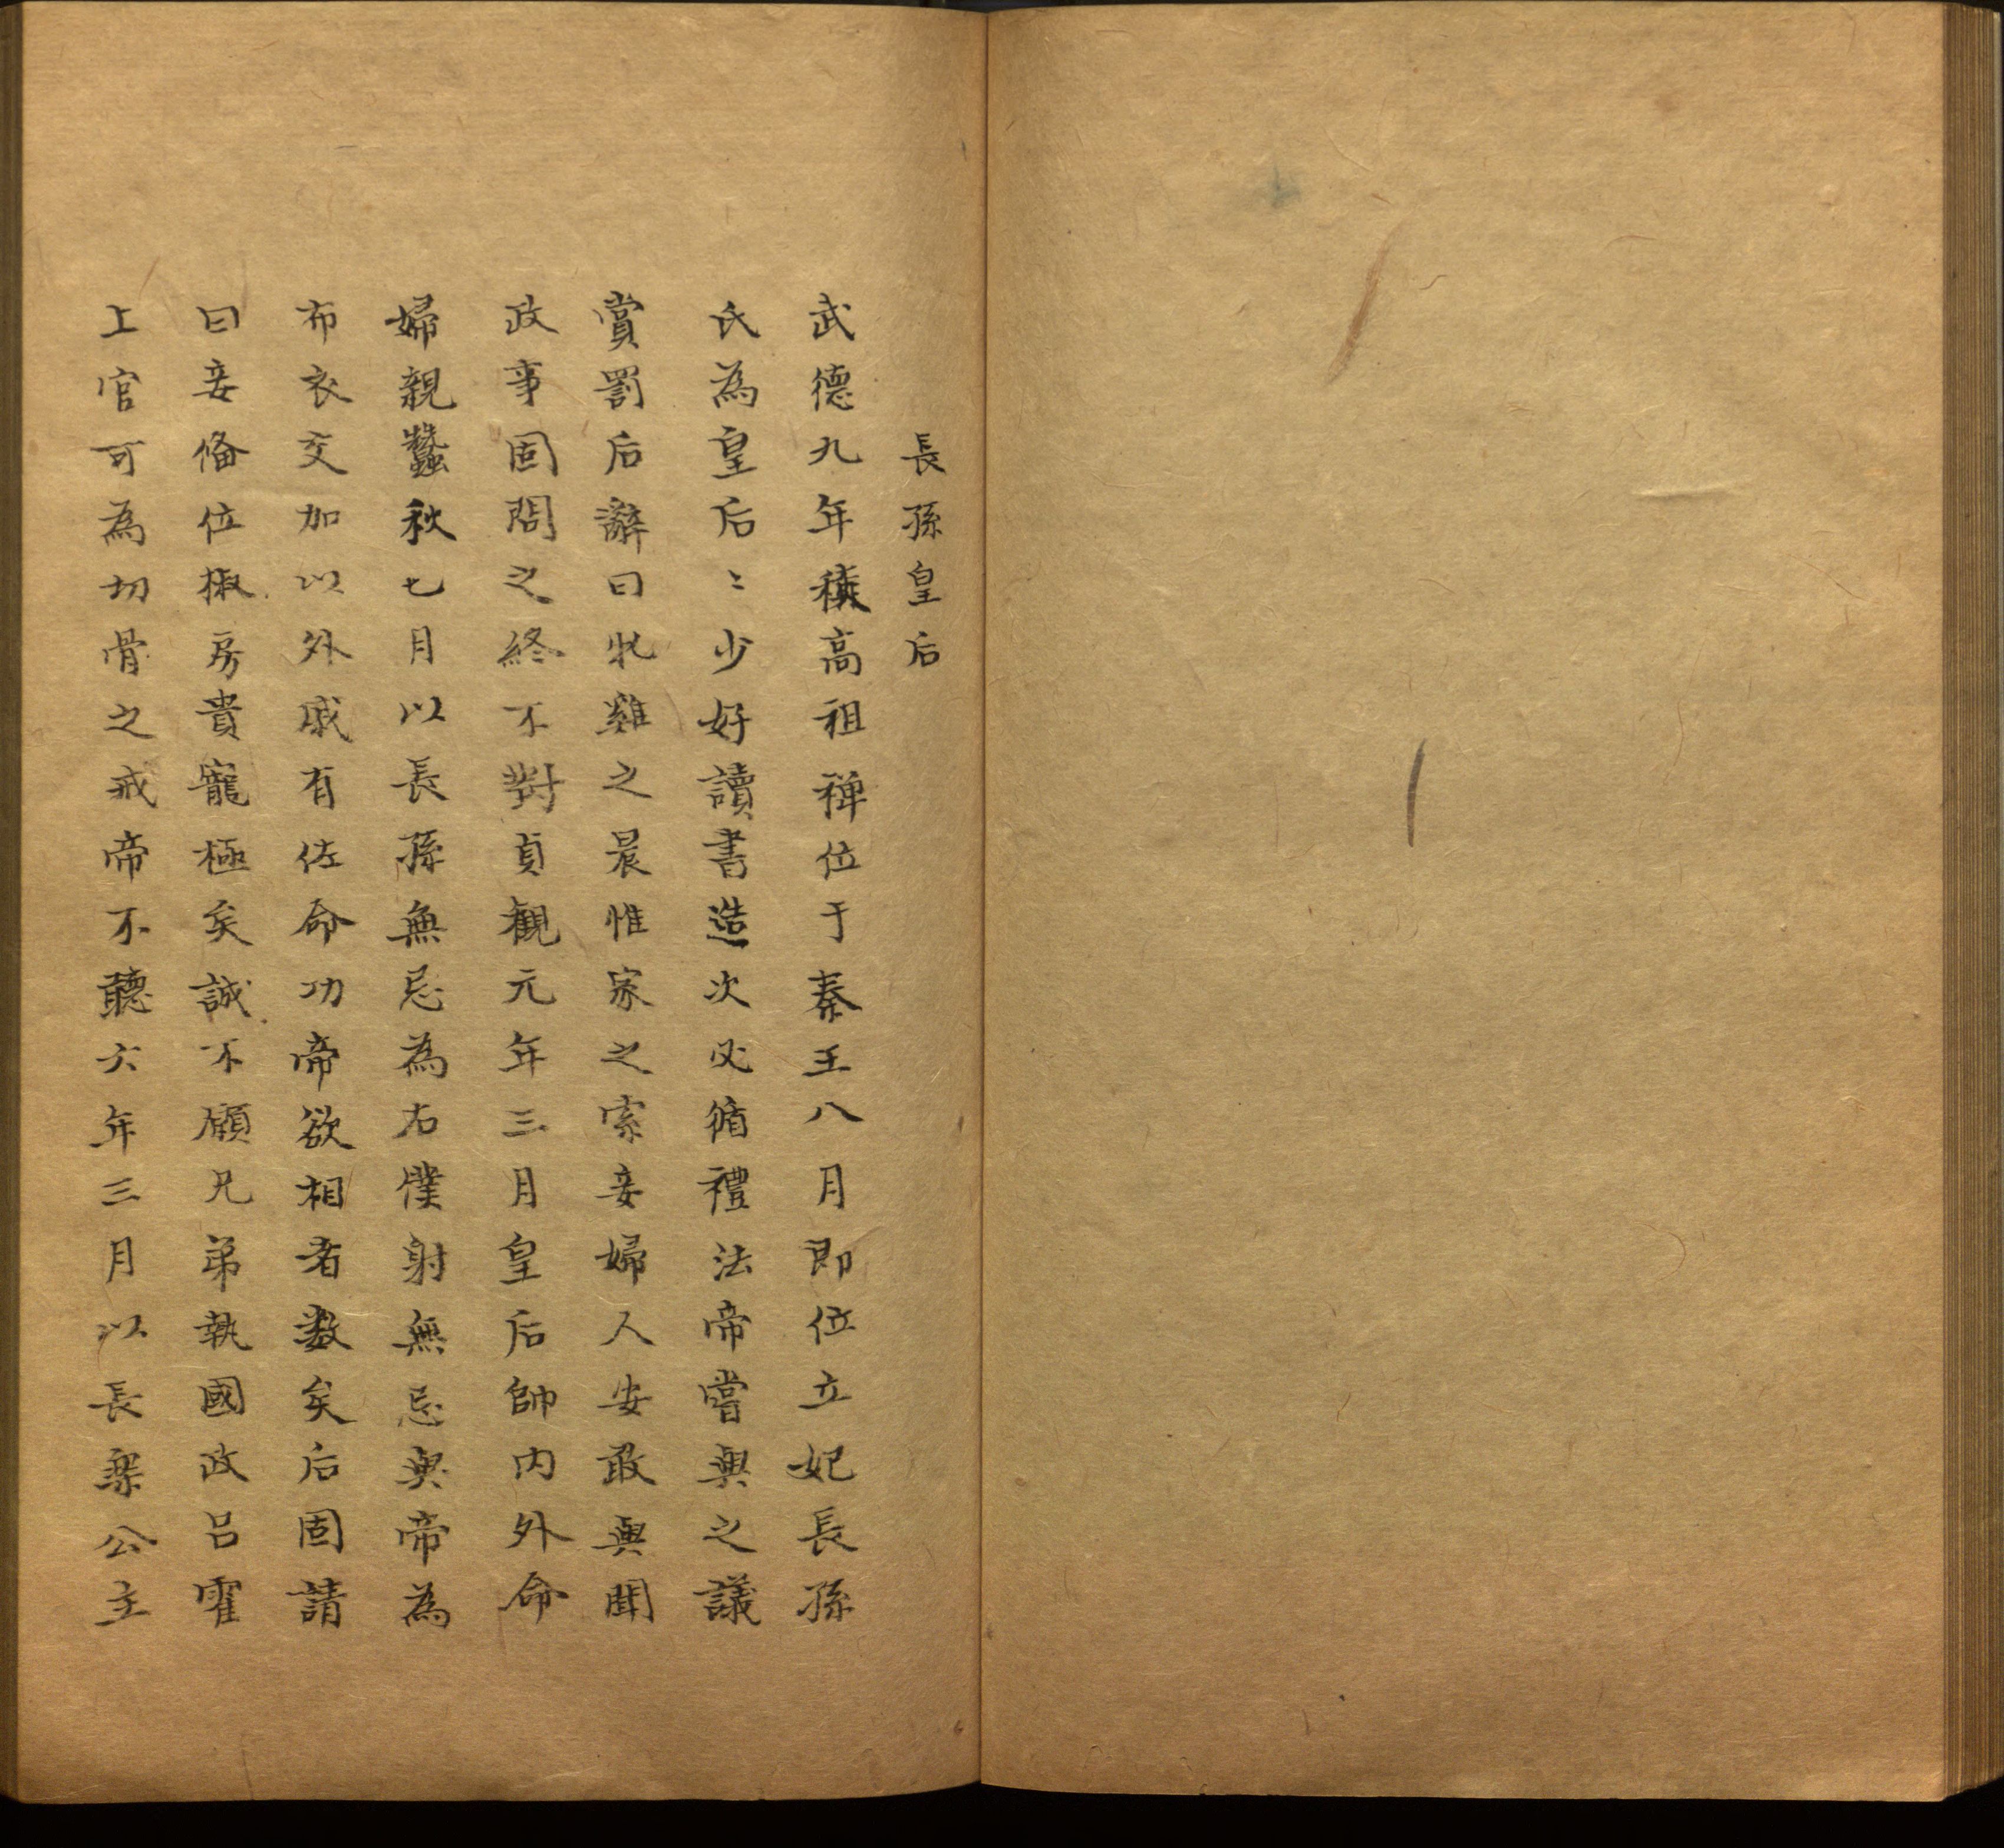 長孫皇后
武德九年積高祖禅位于秦王八月即位立妃長孫
氏為皇后〻少好讀書造次必循禮法帝嘗與之議
賞罰后辭曰牝雞之晨惟家之索妾婦人安敢與聞
政事固問之終不對貞觀元年三月皇后帥内外命
婦親蠶秋七月以長孫無忌為右僕射無忌與帝為
布衣交加以外戚有佐命功帝欲相者数矣后固請
曰妾俻位椒房貴寵極矣誠不願兄弟執國政呂霍
上官可為切骨之戒帝不聽六年三月以長楽公主